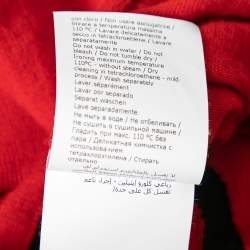 con cloro / Non usare asciugatrice /
Stirare a temperatura massima
110 °C / Lavare delicatamente a
secco in tetracloroetilene / Lavare
separatamente
Do not wash in water / Do not
bleach / Do not tumble dry /
Ironing maximum temperature
110°C - without steam / Dry
cleaning in tetrachloroethene - mild
process / Wash separately
Laver séparément
Lavar por separado
Separat waschen
Lave separadamente
Не мыть в воде / Не отбеливать /
Не сушить в сушильной машине /
Гладить при макс. 110 °C без
пара / Деликатная химчистка с
тетрахлорэтилена / Стирать
отдельно
رباعي كلورو إيثيلين - إجراء ناعم
تغسل كل على حدة/